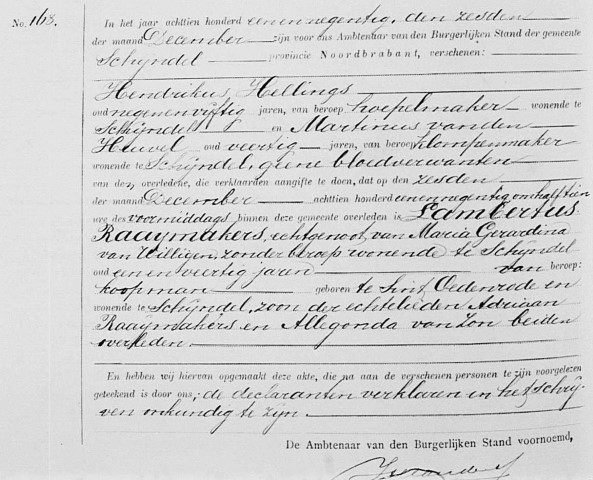 No. 168.
In het jaar achttien honderd een en negentig, den zesden
der maand December zijn voor ons Ambtenaar van den Burgerlijken Stand der gemeente
Schijndel provincie Noordbrabant, verschenen:
Hendrikus Hellings
oud negen en vijftig jaren, van beroep hoepelmaker wonende te
Schijndel en Martinus van den
Heuvel oud veertig jaren, van beroep klompenmaker
wonende te Schijndel, geene bloedverwanten
van den overledene, die verklaarden aangifte te doen, dat op den zesden
der maand December achttien honderd een en negentig om half tien
ure des voormiddags, binnen deze gemeente overleden is Lambertus
Raaymakers, echtgenoot van Maria Gerardina
van Willigen, zonder beroep wonende te Schijndel
oud een en veertig jaren van beroep:
koopman geboren te Sint Oedenrode en
wonende te Schijndel, zoon der echtelieden Adriaan
Raaymakers en Allegonda van Zon beiden
overleden.
En hebben wij hiervan opgemaakt deze akte, die na aan de verschenen personen te zijn voorgelezen
geteekend is door ons; de declaranten verklaren en het schrij-
ven onkundig te zijn.
De Ambtenaar van den Burgerlijken Stand voornoemd,